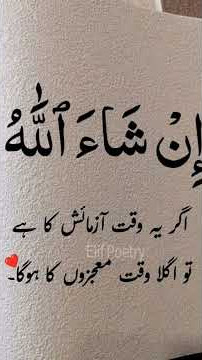 إِنْ شَاءَ ٱللَّٰهُ
اگر یہ وقت آزمائش کا ہے
Elif Poetry
تو اگلا وقت معجزوں کا ہوگا۔